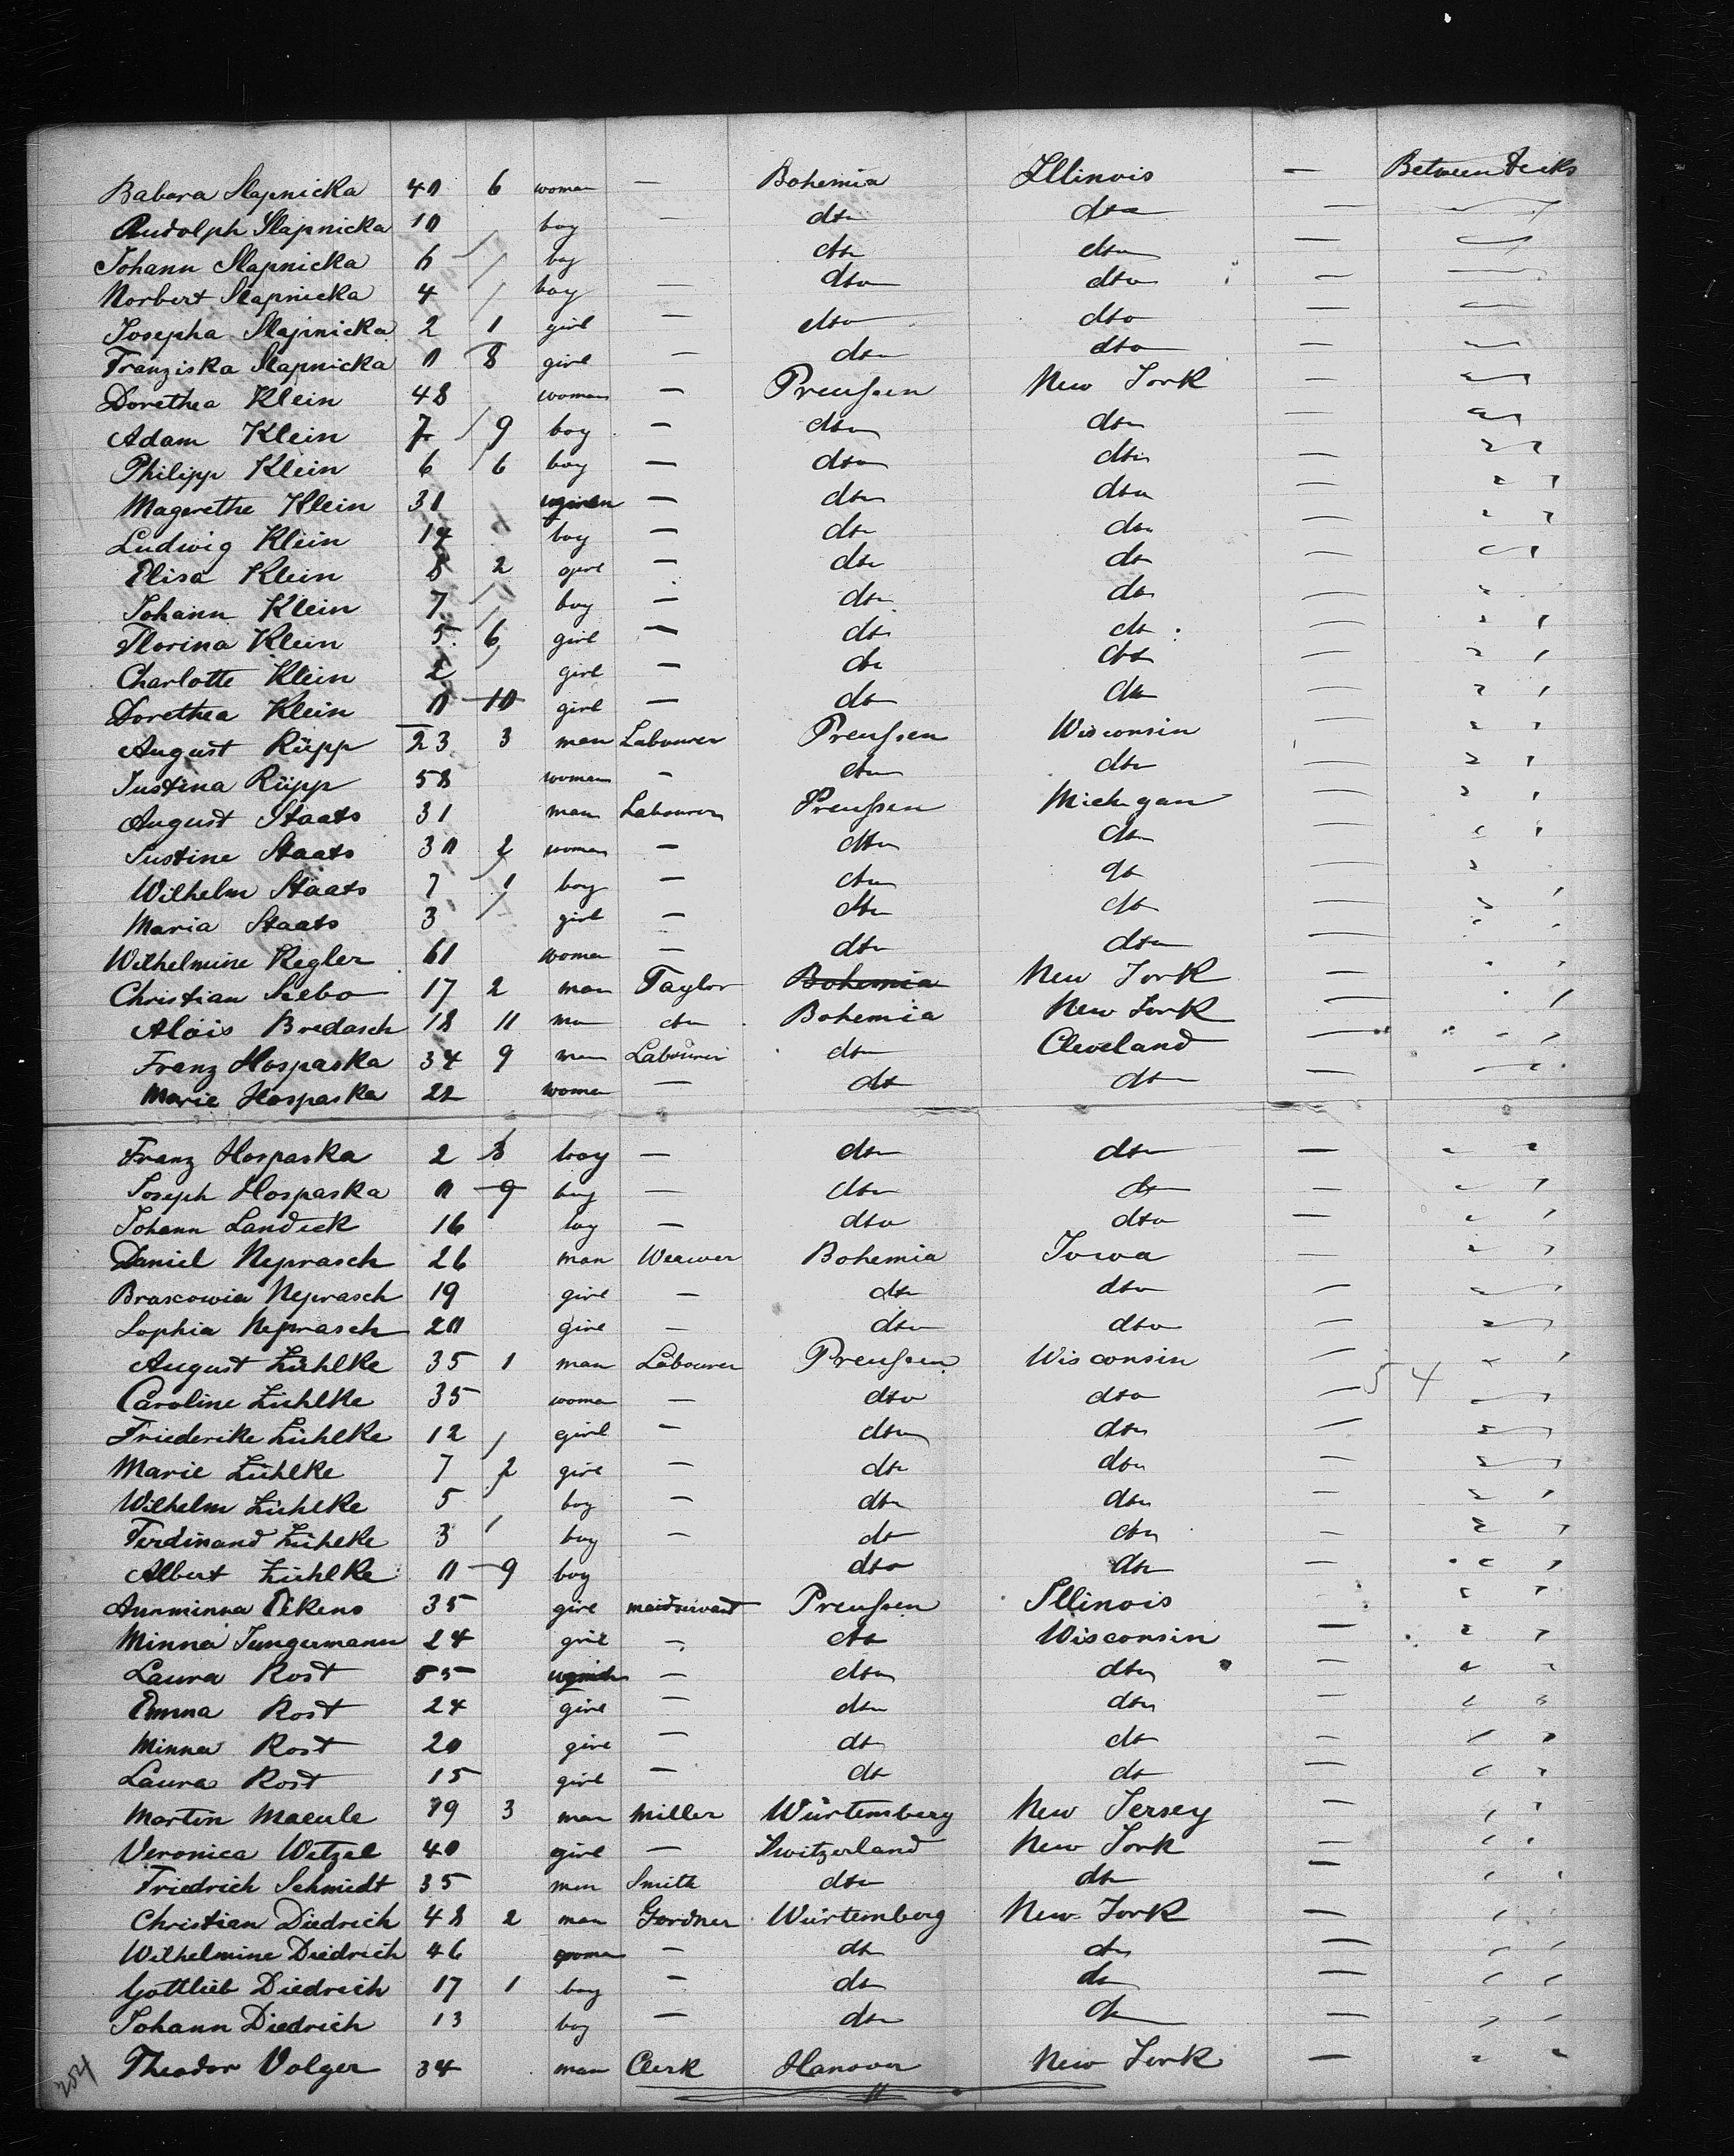 Babara Slapnicka 40 6 woman — Bohemia Illinois — Between decks
Rudolph Slapnicka 10 boy — dto dto —
Johann Slapnicka 6 boy dto dto —
Norbert Slapnicka 4 boy — dto dto —
Josepha Slapnicka 2 1 girl — dto dto —
Franziska Slapnicka 0 8 girl — dto dto —
Dorethea Klein 48 woman — Preußen New York —
Adam Klein 7 9 boy — dto dto —
Philipp Klein 6 6 boy — dto dto —
Magerethe Klein 30 — dto dto —
Ludwig Klein 14 boy — dto dto —
Elisa Klein 8 2 girl — dto dto —
Johann Klein 7 boy — dto dto —
Florina Klein 5 6 girl — dto dto —
Charlotte Klein 2 girl — dto dto —
Dorethea Klein 0 10 girl — dto dto —
August Rüpp 23 3 man Labourer Preußen Wisconsin —
Justina Rüpp 58 woman — dto dto —
August Staats 31 man Labourer Preußen Michigan —
Justine Staats 30 2 woman — dto dto —
Wilhelm Staats 7 1 boy — dto dto —
Maria Staats 3 girl — dto dto —
Wilhelmine Regler 60 woman — dto dto —
Christian Siebo 17 2 man Taylor Bohemia New York —
Alois Bredasch 18 11 man dto Bohemia New York —
Franz Hospaska 34 9 man Labourer dto Cleveland —
Marie Hospaska 22 woman — dto dto —
Franz Hospaska 2 3 boy — dto dto —
Joseph Hospaska 0 9 boy — dto dto —
Johann Landick 16 boy — dto dto —
Daniel Neprasch 26 man Weawer Bohemia Iowa —
Brascowia Neprasch 19 girl — dto dto —
Sophia Neprasch 20 girl — dto dto —
August Zühlke 35 1 man Labourer Preußen Wisconsin —
Caroline Zühlke 35 woman — dto dto — 54
Friederike Zühlke 12 girl — dto dto —
Marie Zühlke 7 2 girl — dto dto —
Wilhelm Zühlke 5 boy — dto dto —
Ferdinand Zühlke 3 boy — dto dto —
Albert Zühlke 0 9 boy dto dto —
Annminna Eikens 35 girl maidservant Preußen Illinois —
Minna Jungermann 24 girl — dto Wisconsin —
Laura Rost 55 — dto dto —
Emma Rost 24 girl — dto dto —
Minna Rost 20 girl — dto dto —
Laura Rost 15 girl — dto dto —
Martin Maeule 19 3 man Miller Würtemberg New Jersey —
Veronica Wetzel 40 girl — Switzerland New York —
Friedrich Schmidt 35 man Smith dto dto —
Christian Diedrich 48 2 man Gardner Würtemberg New York —
Wilhelmine Diedrich 46 woman — dto dto —
Gottlieb Diedrich 17 1 boy — dto dto —
Johann Diedrich 13 boy — dto dto —
Theodor Volger 34 man Clerk Hanover New York —
254